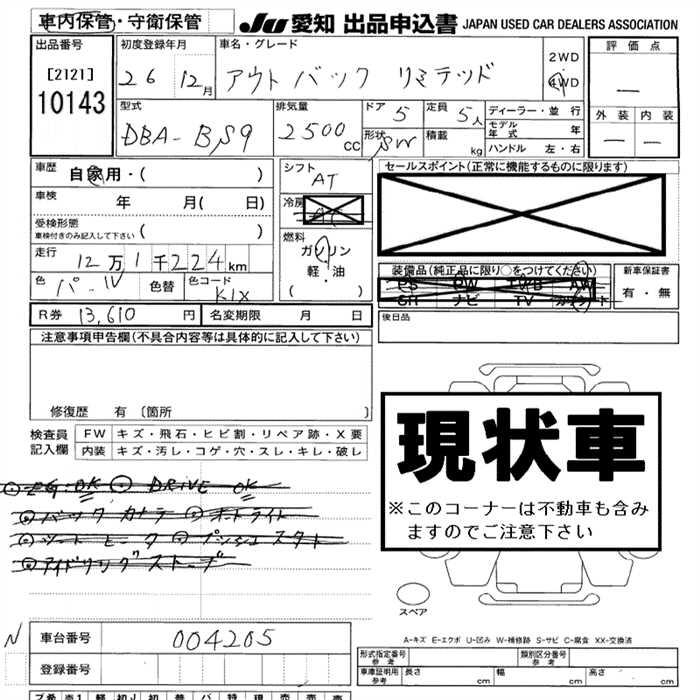 車内保管・守衛保管
JU 愛知 出品申込書 JAPAN USED CAR DEALERS ASSOCIATION
出品番号 初度登録年月 車名・グレード 評価点
[2121] 26 12月 アウトバック リミテッド 2WD 4WD
10143 —
型式 排気量 ドア 5 定員 5人 ディーラー・並行 外装 内装
DBA-BS9 2500cc 形状 SW 積載 kg モデル年式 年 — —
ハンドル 左・右
車歴 自家用・( ) シフト AT セールスポイント(正常に機能するものに限ります)
車検 年 月( 日) 冷房
受検形態 車検付きのみ記入して下さい ( ) 燃料
走行 12万1千224km ガソリン・軽・油 ( ) 装備品(純正品に限り○をつけてください) 新車保証書
色 パール 色替 色コード K1X PS PW TVB AW 有・無
SR ナビ TV カワシート
R券 13,610円 名変期限 月 日 後日品
注意事項申告欄(不具合内容等は具体的に記入して下さい)
修復歴 有 〔箇所 〕
検査員記入欄 FW キズ・飛石・ヒビ割・リペア跡・X要
内装 キズ・汚レ・コゲ・穴・スレ・キレ・破レ
現状車
※このコーナーは不動車も含み
ますのでご注意下さい
EG OK DRIVE OK
バックカメラ オートライト
シートヒータ プッシュスタート
アイドリングストップ
スペア
A-キズ E-エクボ U-凹み W-補修跡 S-サビ C-腐食 XX-交換済
N 車台番号 004205
登録番号
形式指定番号 参考 類別区分番号 参考
車庫証明用 参考 長さ cm 幅 cm 高さ cm